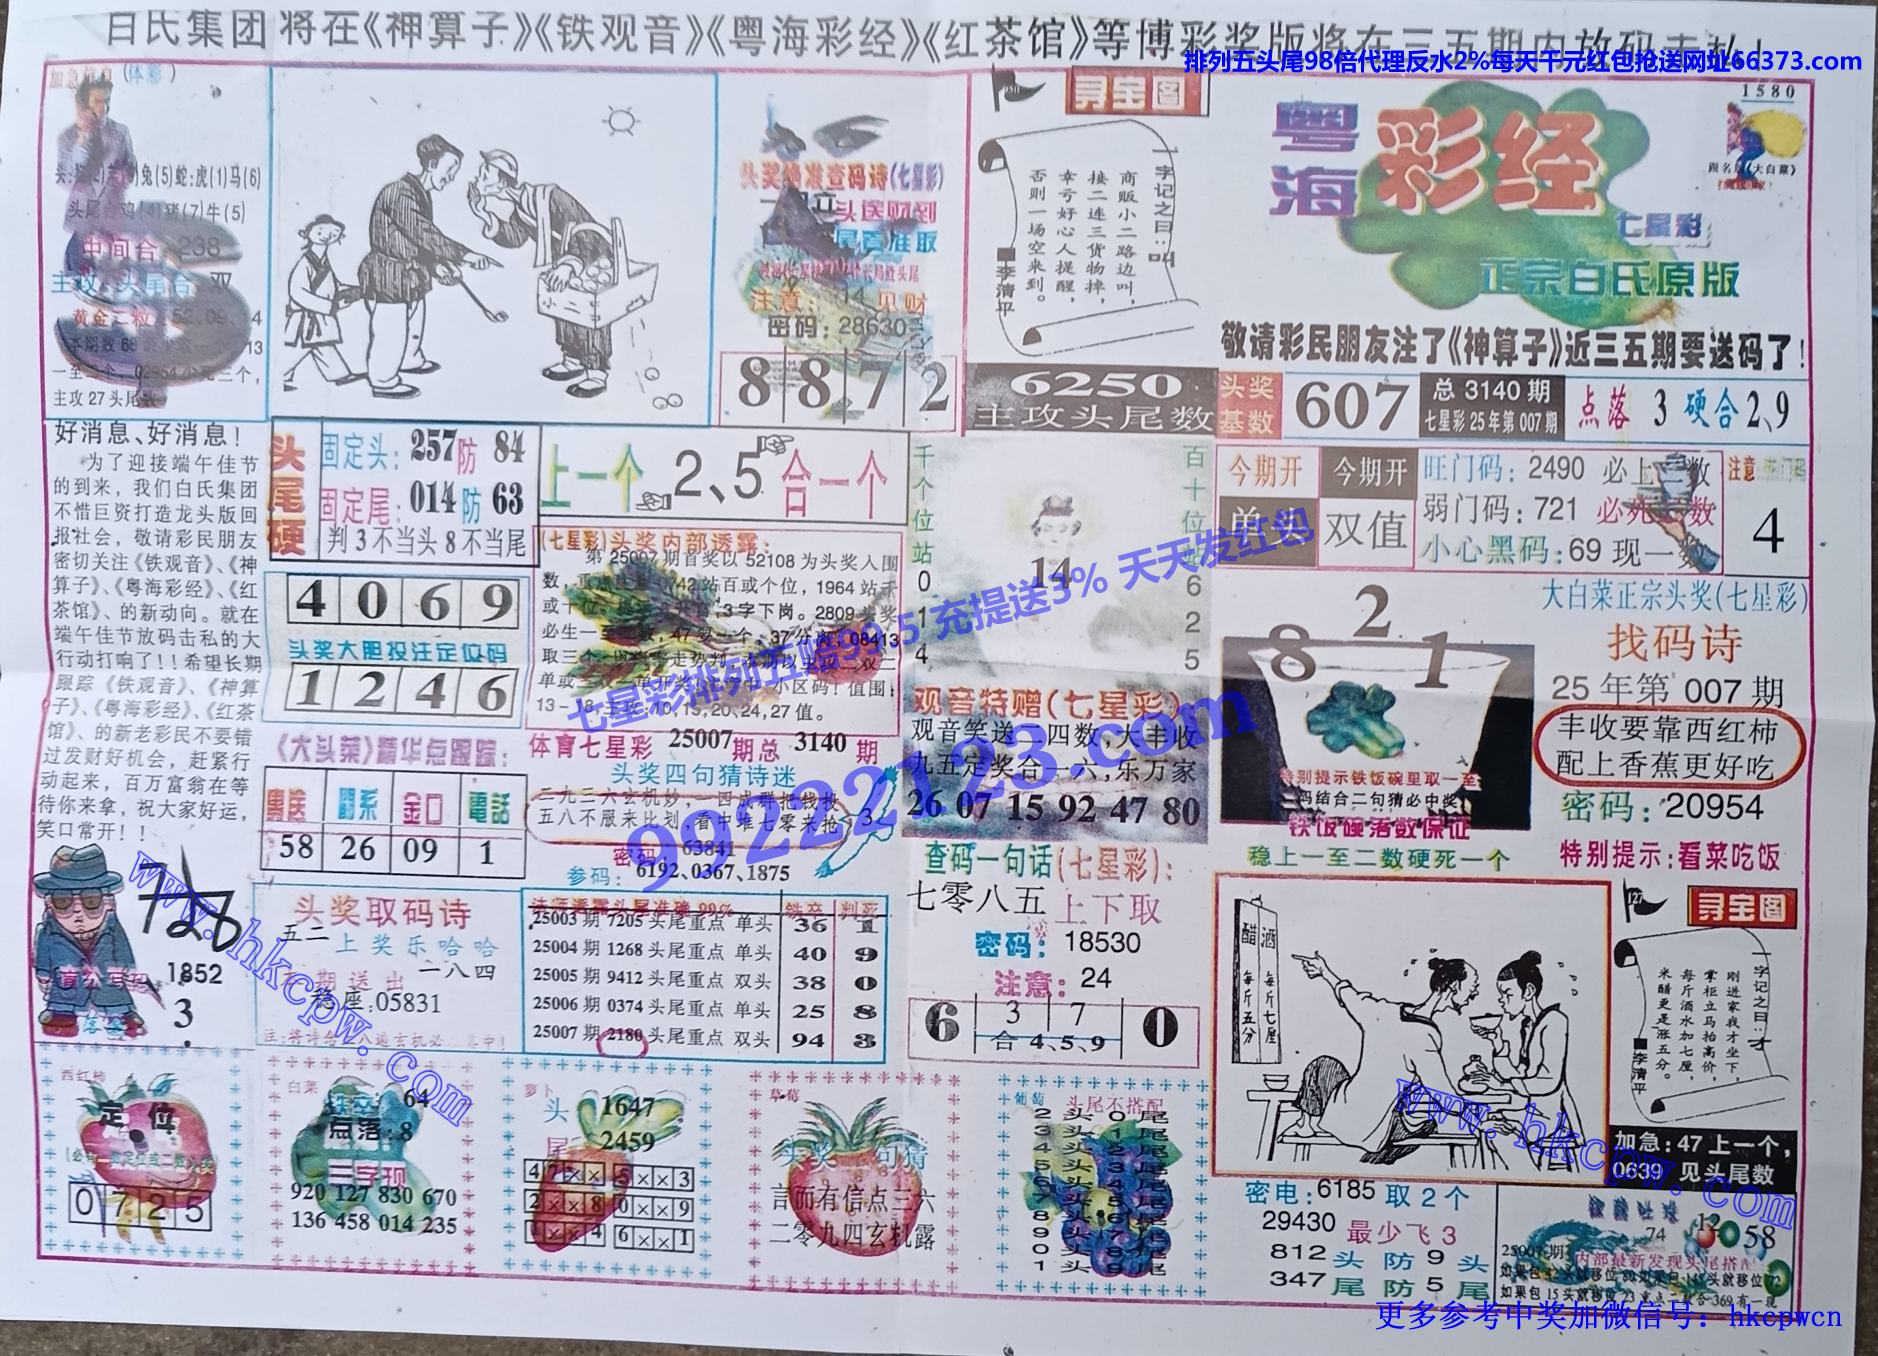 白氏集团 将在《神算子》《铁观音》《粤海彩经》《红茶馆》等博彩奖版将在三五期内放码
排列五头尾98倍代理反水2%每天千元红包抢送网址66373.com
(体彩)
兔(5)蛇:虎(1)马(6)
头尾合鸡(4)猪(7)牛(5)
中间合:238
主攻:头尾合 双
主攻27头尾
头奖绝准查码诗(七星彩)
注意:14见财
密码:28630
8 8 7 2
寻宝图
一字记之曰:叫
商贩小二路边叫,
接二连三货物掉,
幸亏好心人提醒,
否则一场空来到。
李清平
6250
主攻头尾数
粤海彩经
七星彩
正宗白氏原版
1580
跟名版《大白菜》
敬请彩民朋友注了《神算子》近三五期要送码了!
头奖基数 607
总3140期
七星彩25年第007期
点落 3 硬合2、9
好消息、好消息!
为了迎接端午佳节
的到来，我们白氏集团
不惜巨资打造龙头版回
报社会，敬请彩民朋友
密切关注《铁观音》、《神
算子》、《粤海彩经》、《红
茶馆》、的新动向。就在
端午佳节放码击私的大
行动打响了!!希望长期
跟踪《铁观音》、《神算
子》、《粤海彩经》、《红茶
馆》、的新老彩民不要错
过发财好机会，赶紧行
动起来，百万富翁在等
待你来拿，祝大家好运，
笑口常开!!
头尾硬
固定头:257防84
固定尾:014防63
判3不当头8不当尾
上一个 2、5 合一个
4 0 6 9
头奖大胆投注定位码
1 2 4 6
(七星彩)头奖内部透露:
第25007期首奖以52108为头奖入围
13-18,主攻:10,15,20,24,27值。
千个位站0、1、4、
14
百十位站6、2、5
今期开 单头
今期开 双值
旺门码:2490 必上
弱门码:721
小心黑码:69现一数
注意
4
8 2 1
特别提示铁饭碗里取一至
码结合二句猜必中奖
铁饭碗落数保证
稳上一至二数硬死一个
大白菜正宗头奖(七星彩)
找码诗
25年第007期
丰收要靠西红柿
配上香蕉更好吃
密码:20954
特别提示:看菜吃饭
《大头菜》精华点跟踪:
粤送 關系 金口 電話
58 26 09 1
体育七星彩 25007期总 3140 期
头奖四句猜诗迷
三九三六玄机妙，一四成群把钱投
五八不服来比划，看中堆七零来抢
3
密码:63841
参码:6192、0367、1875
观音特赠(七星彩)
观音笑送二四数,大丰收
九五定奖合一六,乐万家
26 07 15 92 47 80
查码一句话(七星彩):
七零八五 上下取
密码:18530
注意:24
6 3 7 0
合 4、5、9
1852
3
头奖取码诗
五二上奖乐哈哈
本期送出一八四
稳座:05831
法师透露头尾准确99% 铁卒 判死
25003期 7205头尾重点 单头 36 1
25004期 1268头尾重点 单头 40 9
25005期 9412头尾重点 双头 38 0
25006期 0374头尾重点 单头 25 8
25007期 2180头尾重点 双头 94 3
酒 每斤七厘
醋 每斤五分
寻宝图
一字记之曰:才
刚进家我才坐下,
掌柜立马抬高价,
每斤酒水加七厘,
米醋更是涨五分。
李清平
加急:47上一个,
0639见头尾数
西红柿
定位
0 7 2 5
白菜
铁卒:64
点落:8
三字现
920 127 830 670
136 458 014 235
萝卜
头 1647
尾 2459
4 7 × × 5 × × 3
2 × × 8 0 × × 9
1 × × 4 6 × × 1
草莓
头奖一句猜
言而有信点三六
二零九四玄机露
葡萄
头尾不搭配
2头0尾
3头1尾
4头2尾
5头3尾
6头4尾
7头5尾
8头6尾
9头7尾
0头8尾
1头9尾
密电:6185取2个
29430最少飞3
812头防9头
347尾防5尾
74 12 58
25007期:
内部最新发现头尾搭配
七星彩排列五赔99.5 充提送3% 天天发红包
99222123.com
www.hkcpw.com
www.hkcpw.com
更多参考中奖加微信号: hkcpwcn